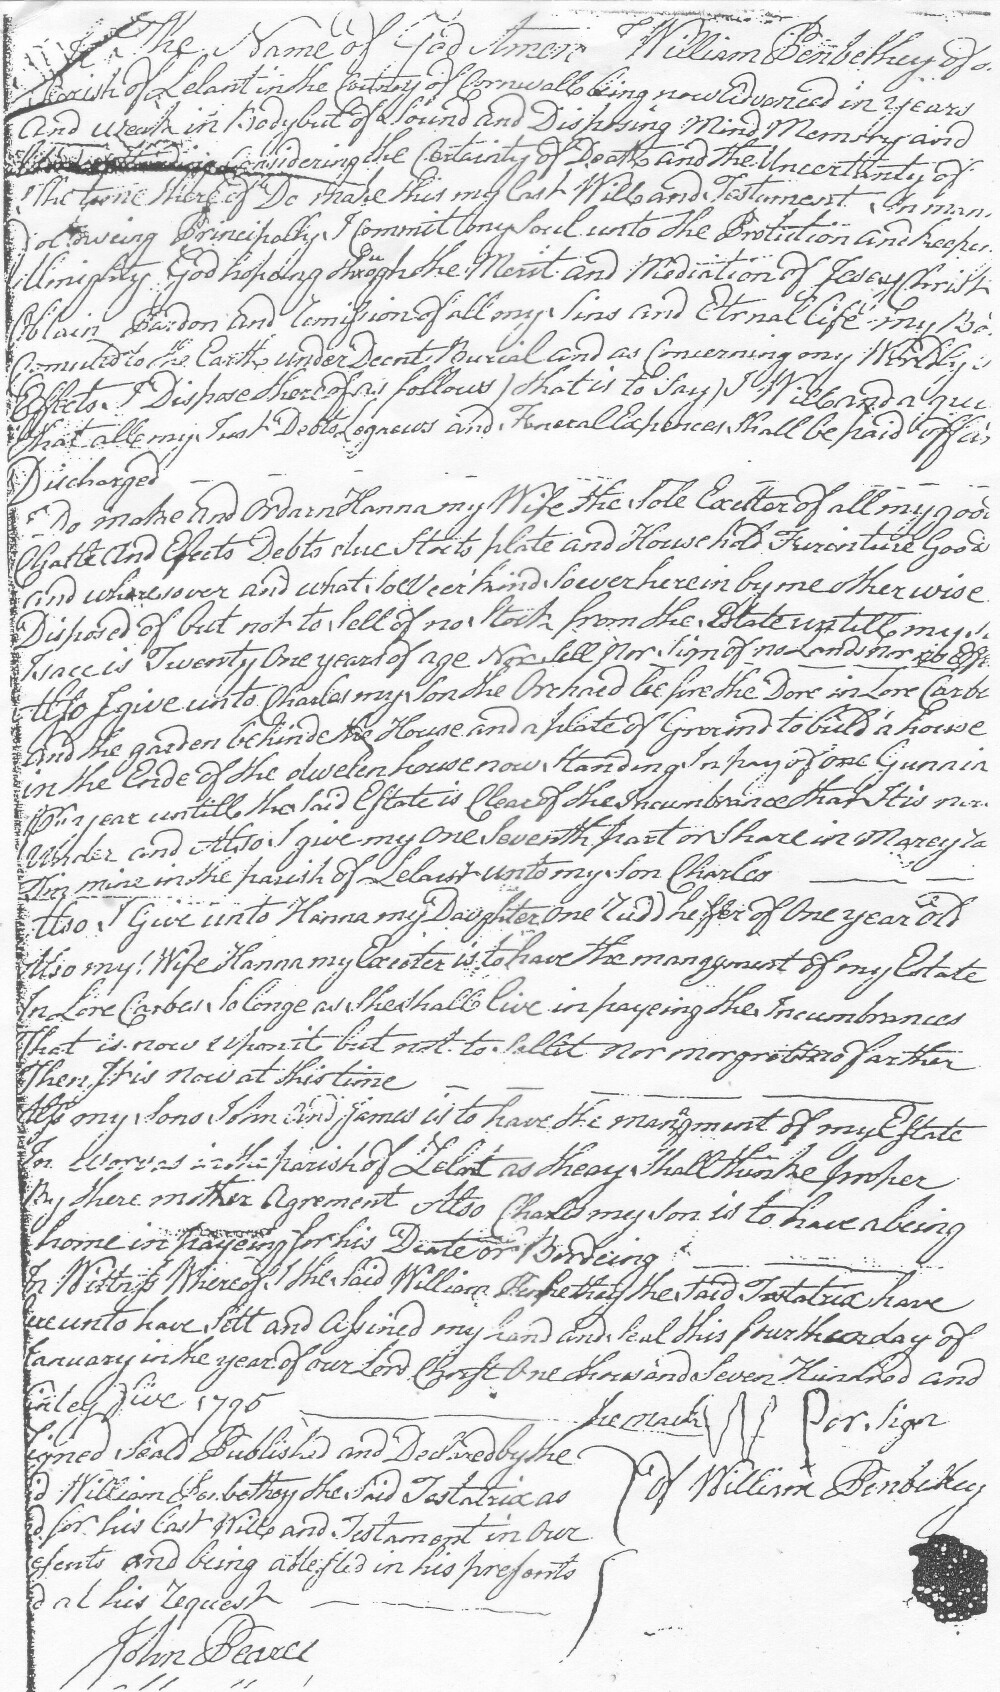 In The Name of God Amen I William Penbethey of
Parish of Lelant in the Countey of Cornwall being now Advanced in Years
And weak in Body but of Sound and Disposing Mind Memory and
Considering the Certainty of Death and the Uncertinty of
The time there of Do make this my Last Will and Testament In man
Folowing Principally I Commit my Soul unto the Protiction and keepin
Allmighty God hopeing through the Merit and Mediation of Jesus Christ
Obtain Pardon and Remission of all my Sins and Eternal life my Bo
Comited to the Earth under Decent Burial and as Concerning my Wordly
Effects I Dispose there of as follows (that is to Say) I Will and a
That all my Just Debts Legaceys and Funeral Expences Shall be paid off
Discharged
I do make and Ordarn Hanna my Wife the Sole Exctter of all my good
Chatte And Efects Debts due Stocts plate and House hold Furinture Good
and wheresover and what Soever kind Soever herein by me other wise
Disposed of but not to Sell of no Stock from the Estate untill my
Isacc is Twenty One years of age Nor Sell Nor Sign of no Lands nor
Also I give unto Charles my Son the Orchard be fore the Dore in Lore Carbe
and the garden behinde the House and a plate of Ground to buld a house
in the Ende of the dwelen house now Standing In pay of one Gunna in
year untill the Said Estate is Clear of the Incumbrance that It is now
Under and Also I give my One Seventh part or Share in Marey
Tin mine in the parish of Lelant unto my Son Charles
Also I Give unto Hanna my Daughter One heffer of One year old
Also my Wife Hanna my Execter is to have the mangement of my Estate
In Lore Carbes So longe as She Shall live in payeing the Incumbrances
That is now upon it but not to Sell it Nor farther
Then It is now at this time
Also my Sons John and James is to have the mangment of my Estate
In Worvas in the parish of Lelant as theay Shall thinke proper
By there mother Agrement Also Charles my Son is to have a being
home in payeing for his Diate or Bordeing
In Wittnss Whereof I the Said William Penbethey the Said Tastatrix have
unto have Sett and Assined my hand and Seal this fourth day of
January in the year of our Lord Christ One thousand Seven Hundred and
five 1795
the mark Por Sign
Signed Seald Published and Declared by the
William Penbethey the Said Tastatrix as
of William Penbethey
for his Last Will and Testament in Our
and being attested in his presents
at his request
John Pearce